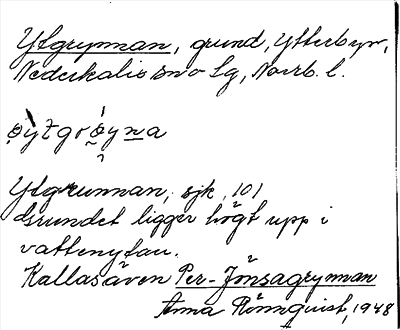 Ytgrynnan, grund, Ytterbyn,
Nederkalix sn o Lg, Norrb. l.
Ytgrunnan, sjk. 101
Grundet ligger högt upp i
vattenytan.
Kallas även Per-Jönsagrynnan
Anna Rönnquist, 1948